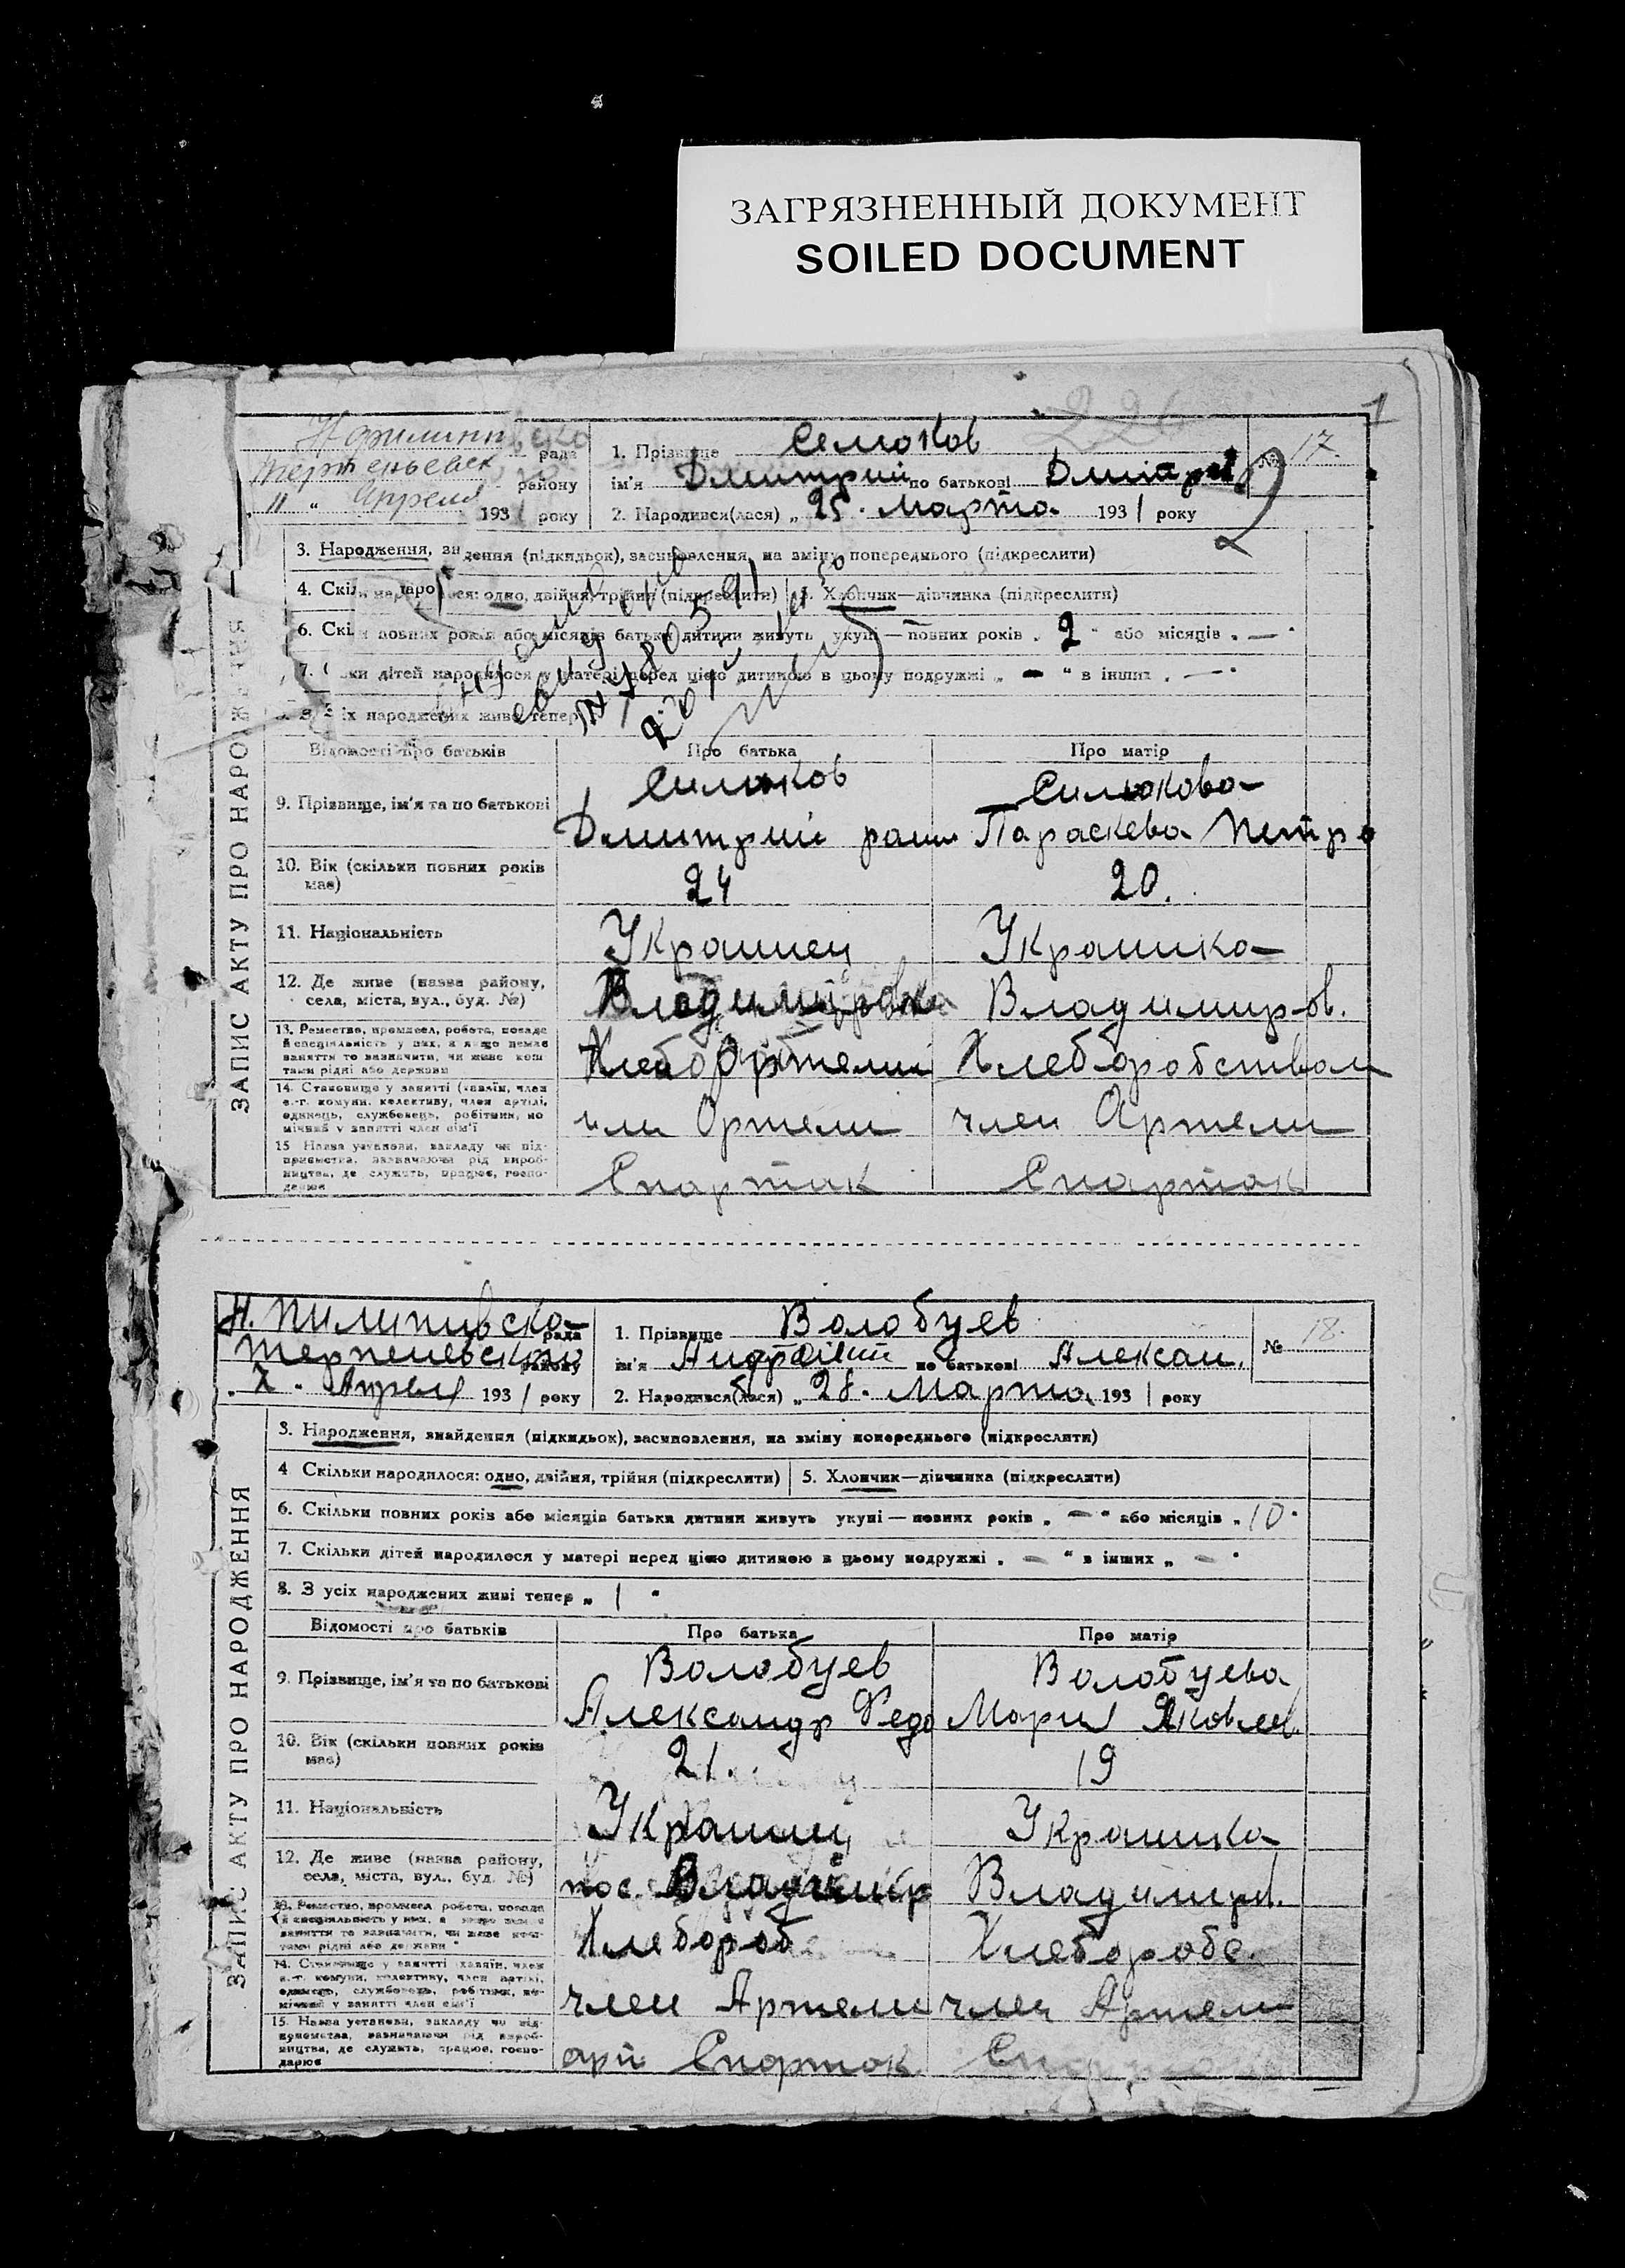 ЗАГРЯЗНЕННЫЙ ДОКУМЕНТ
SOILED DOCUMENT
1
226
рада
району
11 " Апреля 1931 року
1. Прізвище Семюков
№ 17.
ім'я Дмитрий по батькові
2. Народився(лася) „ 25. Марта 1931 року
ЗАПИС АКТУ ПРО
3. Народження, (підкидьок), засиновлення, на зміну попереднього (підкреслити)
4. одно, двійня, трійня (підкреслити) 5. Хлопчик—дівчинка (підкреслити)
6. повних років або місяців батьки дитини живуть укупі — повних років „ 2 " або місяців „ — "
7. дітей народилося у матері перед цією дитиною в цьому подружжі „ — " в інших „ — "
їх народжених живі тепер
№ 17805
Відомості про батьків Про батька Про матір
9. Прізвище, ім'я та по батькові Силюков Силюкова
Дмитрий Параскева Петро
10. Вік (скільки повних років має) 24 20.
11. Національність Украинец Украинка
12. Де живе (назва району, села, міста, вул., буд. №) Владимировка Владимиров.
13. Ремество, промисел, робота, посада й спеціяльність у них, а якщо немає заняття то зазначити, чи живе коштами рідні або держави Хлеборобством
14. Становище у занятті (хазяїн, член с.-г. комуни, колективу, член артілі, одинець, службовець, робітник, помічний у занятті член сім'ї Артели член Артели
15 Назва установи, закладу чи підприємства, зазначаючи рід виробництва, де служить, працює, господарює Спартак Спартак
Н. Пилиповска рада
району
. X . Апреля 1931 року
1. Прізвище Волобуев
№ 18.
ім'я по батькові Алексан.
2. Народився(лася) „ 28. Марта 1931 року
ЗАПИС АКТУ ПРО НАРОДЖЕННЯ
3. Народження, знайдення (підкидьок), засиновлення, на зміну попереднього (підкреслити)
4 Скільки народилося: одно, двійня, трійня (підкреслити) 5. Хлопчик—дівчинка (підкреслити)
6. Скільки повних років або місяців батьки дитини живуть укупі — повних років „ — " або місяців „ 10 "
7. Скільки дітей народилося у матері перед цією дитиною в цьому подружжі „ — " в інших „ — "
8. З усіх народжених живі тепер „ 1 "
Відомості про батьків Про батька Про матір
9. Прізвище, ім'я та по батькові Волобуев Волобуева
Александр Федо Мария Яковлев.
10. Вік (скільки повних років має) 21. 19
11. Національність Украинец Украинка
12. Де живе (назва району, села, міста, вул., буд. №) пос. Владимир Владимиров.
13. Ремество, промисел робота, посада й спеціяльність у них, а якщо немає заняття то зазначити, чи живе коштами рідні або держави Хлебороб Хлеборобс.
14. Становище у занятті (хазяїн, член с.-г. комуни, колективу, член артілі, одинець, службовець, робітник, помічний у занятті член сім'ї член Артели член Артели
15. Назва установи, закладу чи підприємства, зазначаючи рід виробництва, де служить, працює, господарює арт Спарток Спарток